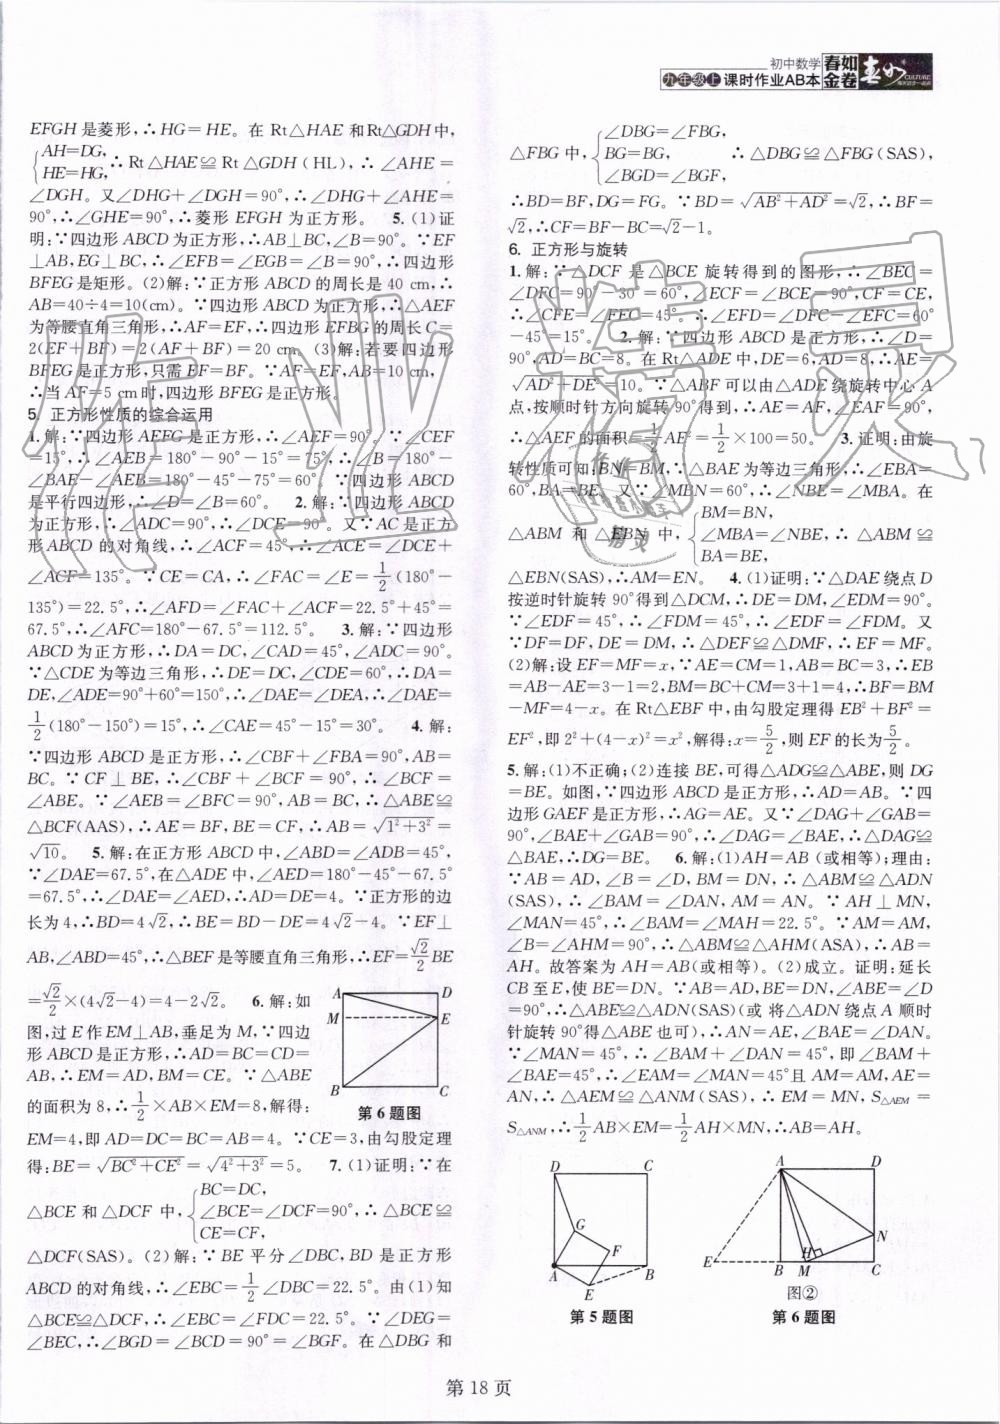 初中数学
九年级上 课时作业AB本
春如金卷
EFGH是菱形,∴HG=HE。在Rt△HAE和Rt△GDH中,
{AH=DG, HE=HG, ∴Rt△HAE≌Rt△GDH(HL),∴∠AHE=
∠DGH。又∠DHG+∠DGH=90°,∴∠DHG+∠AHE=
90°,∴∠GHE=90°,∴菱形EFGH为正方形。 5.(1)证
明:∵四边形ABCD为正方形,∴AB⊥BC,∠B=90°。∵EF
⊥AB,EG⊥BC,∴∠EFB=∠EGB=∠B=90°,∴四边形
BFEG是矩形。(2)解:∵正方形ABCD的周长是40 cm,∴
AB=40÷4=10(cm)。∵四边形ABCD为正方形,∴△AEF
为等腰直角三角形,∴AF=EF,∴四边形EFBG的周长C=
2(EF+BF)=2(AF+BF)=20 cm。(3)解:若要四边形
BFEG是正方形,只需EF=BF。∵AF=EF,AB=10 cm,
∴当AF=5 cm时,四边形BFEG是正方形。
5. 正方形性质的综合运用
1.解:∵四边形AEFG是正方形,∴∠AEF=90°。∵∠CEF
=15°,∴∠AEB=180°-90°-15°=75°,∴∠B=180°-
∠BAE-∠AEB=180°-45°-75°=60°。∵四边形ABCD
是平行四边形,∴∠D=∠B=60°。 2.解:∵四边形ABCD
为正方形,∴∠ADC=90°,∴∠DCE=90°。又∵AC是正方
形ABCD的对角线,∴∠ACF=45°,∴∠ACE=∠DCE+
∠ACF=135°。∵CE=CA,∴∠FAC=∠E=1/2(180°-
135°)=22.5°,∴∠AFD=∠FAC+∠ACF=22.5°+45°=
67.5°,∴∠AFC=180°-67.5°=112.5°。 3.解:∵四边形
ABCD为正方形,∴DA=DC,∠CAD=45°,∠ADC=90°。
∵△CDE为等边三角形,∴DE=DC,∠CDE=60°,∴DA=
DE,∠ADE=90°+60°=150°,∴∠DAE=∠DEA,∴∠DAE=
1/2(180°-150°)=15°,∴∠CAE=45°-15°=30°。 4.解:
∵四边形ABCD是正方形,∴∠CBF+∠FBA=90°,AB=
BC。∵CF⊥BE,∴∠CBF+∠BCF=90°,∴∠BCF=
∠ABE。∵∠AEB=∠BFC=90°,AB=BC,∴△ABE≌
△BCF(AAS),∴AE=BF,BE=CF,∴AB=√(1²+3²)=
√10。 5.解:在正方形ABCD中,∠ABD=∠ADB=45°,
∵∠DAE=67.5°,在△ADE中,∠AED=180°-45°-67.5°
=67.5°,∴∠DAE=∠AED,∴AD=DE=4。∵正方形的边
长为4,∴BD=4√2,∴BE=BD-DE=4√2-4。∵EF⊥
AB,∠ABD=45°,∴△BEF是等腰直角三角形,∴EF=√2/2BE
=√2/2×(4√2-4)=4-2√2。 6.解:如
图,过E作EM⊥AB,垂足为M,∵四边
形ABCD是正方形,∴AD=BC=CD=
AB,∴EM=AD,BM=CE。∵△ABE
的面积为8,∴1/2×AB×EM=8,解得:
A D M E B C
第6题图
EM=4,即AD=DC=BC=AB=4。∵CE=3,由勾股定理
得:BE=√(BC²+CE²)=√(4²+3²)=5。 7.(1)证明:∵在
△BCE和△DCF中,{BC=DC, ∠BCE=∠DCF=90°, CE=CF, ∴△BCE≌
△DCF(SAS)。(2)解:∵BE平分∠DBC,BD是正方形
ABCD的对角线,∴∠EBC=1/2∠DBC=22.5°。由(1)知
△BCE≌△DCF,∴∠EBC=∠FDC=22.5°。∵∠DEG=
∠BEC,∴∠BGD=∠BCD=90°=∠BGF。在△DBG和
△FBG中,{∠DBG=∠FBG, BG=BG, ∠BGD=∠BGF, ∴△DBG≌△FBG(SAS),
∴BD=BF,DG=FG。∵BD=√(AB²+AD²)=√2,∴BF=
√2,∴CF=BF-BC=√2-1。
6. 正方形与旋转
1.解:∵△DCF是△BCE旋转得到的图形,∴∠BEC=
∠DFC=90°-30°=60°,∠ECF=∠BCE=90°,CF=CE,
∴∠CFE=∠FEC=45°。∴∠EFD=∠DFC-∠EFC=60°
-45°=15°。 2.解:∵四边形ABCD是正方形,∴∠D=
90°,AD=BC=8。在Rt△ADE中,DE=6,AD=8,∴AE=
√(AD²+DE²)=10。∵△ABF可以由△ADE绕旋转中心A
点,按顺时针方向旋转90°得到,∴AE=AF,∠EAF=90°,
∴△AEF的面积=1/2AE²=1/2×100=50。 3.证明:由旋
转性质可知,BN=BM,∵△BAE为等边三角形,∴∠EBA=
60°,BA=BE。又∵∠MBN=60°,∴∠NBE=∠MBA。在
△ABM和△EBN中,{BM=BN, ∠MBA=∠NBE, BA=BE, ∴△ABM≌
△EBN(SAS),∴AM=EN。 4.(1)证明:∵△DAE绕点D
按逆时针旋转90°得到△DCM,∴DE=DM,∠EDM=90°。
∵∠EDF=45°,∴∠FDM=45°,∴∠EDF=∠FDM。又
∵DF=DF,DE=DM,∴△DEF≌△DMF,∴EF=MF。
(2)解:设EF=MF=x,∵AE=CM=1,AB=BC=3,∴EB
=AB-AE=3-1=2,BM=BC+CM=3+1=4,∴BF=BM
-MF=4-x。在Rt△EBF中,由勾股定理得EB²+BF²=
EF²,即2²+(4-x)²=x²,解得:x=5/2,则EF的长为5/2。
5.解:(1)不正确;(2)连接BE,可得△ADG≌△ABE,则DG
=BE。如图,∵四边形ABCD是正方形,∴AD=AB。∵四
边形GAEF是正方形,∴AG=AE。又∵∠DAG+∠GAB=
90°,∠BAE+∠GAB=90°,∴∠DAG=∠BAE,∴△DAG≌
△BAE,∴DG=BE。 6.解:(1)AH=AB(或相等);理由:
∵AB=AD,∠B=∠D,BM=DN,∴△ABM≌△ADN
(SAS),∴∠BAM=∠DAN,AM=AN。∵AH⊥MN,
∠MAN=45°,∴∠BAM=∠MAH=22.5°。∵AM=AM,
∠B=∠AHM=90°,∴△ABM≌△AHM(ASA),∴AB=
AH。故答案为AH=AB(或相等)。(2)成立。证明:延长
CB至E,使BE=DN。∵AB=AD,BE=DN,∠ABE=∠D
=90°,∴△ABE≌△ADN(SAS)(或将△ADN绕点A顺时
针旋转90°得△ABE也可),∴AN=AE,∠BAE=∠DAN。
∵∠MAN=45°,∴∠BAM+∠DAN=45°,即∠BAM+
∠BAE=45°,∴∠EAM=∠MAN=45°且AM=AM,AE=
AN,∴△AEM≌△ANM(SAS),∴EM=MN,S△AEM=
S△ANM,∴1/2AB×EM=1/2AH×MN,∴AB=AH。
D C G F A B E
第5题图
A D N H E B M C
图②
第6题图
第18页
作业精灵